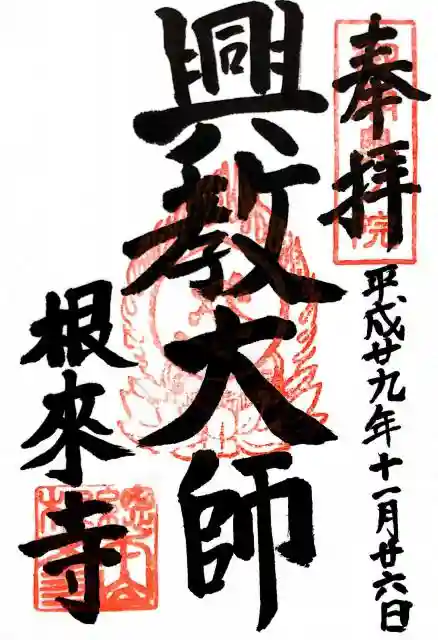 奉拝
平成廿九年十一月廿六日
興教大師
根來寺